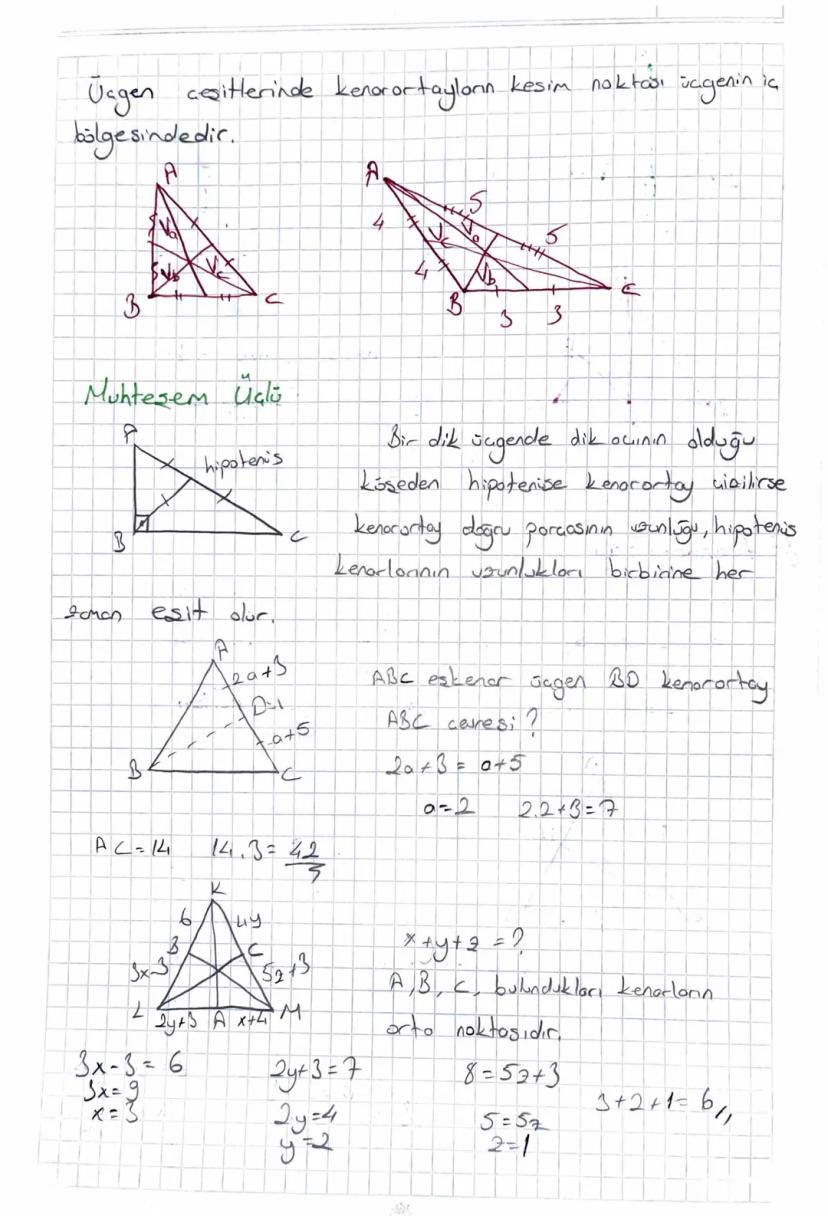 Üçgen çeşitlerinde kenarortayların kesim noktası üçgenin iç
bölgesindedir.
A
Va
Vb
Vc
B
C
A
5
5
4
4
Vc
Va
Vb
B
C
3
3
Muhteşem Üçlü
A
hipotenis
B
C
Bir dik üçgende dik açının olduğu
köşeden hipotenise kenarortay çizilirse
kenarortay doğru parçasının uzunluğu, hipotenis
kenarlarının uzunlukları birbirine her
zaman eşit olur.
A
2a+3
D
a+5
B
C
ABC eşkenar üçgen BD kenarortay
ABC çevresi?
2a+3 = a+5
a=2 2.2+3=7
AC=14 14.3=42
K
6
4y
B
C
3x-3
5z+3
L
2y+3
A
x+4
M
x+y+z=?
A, B, C, bulundukları kenarların
orta noktasıdır.
3x-3=6 2y+3=7 8=5z+3
3x=9 2y=4 5=5z 3+2+1=6,,
x=3 y=2 z=1